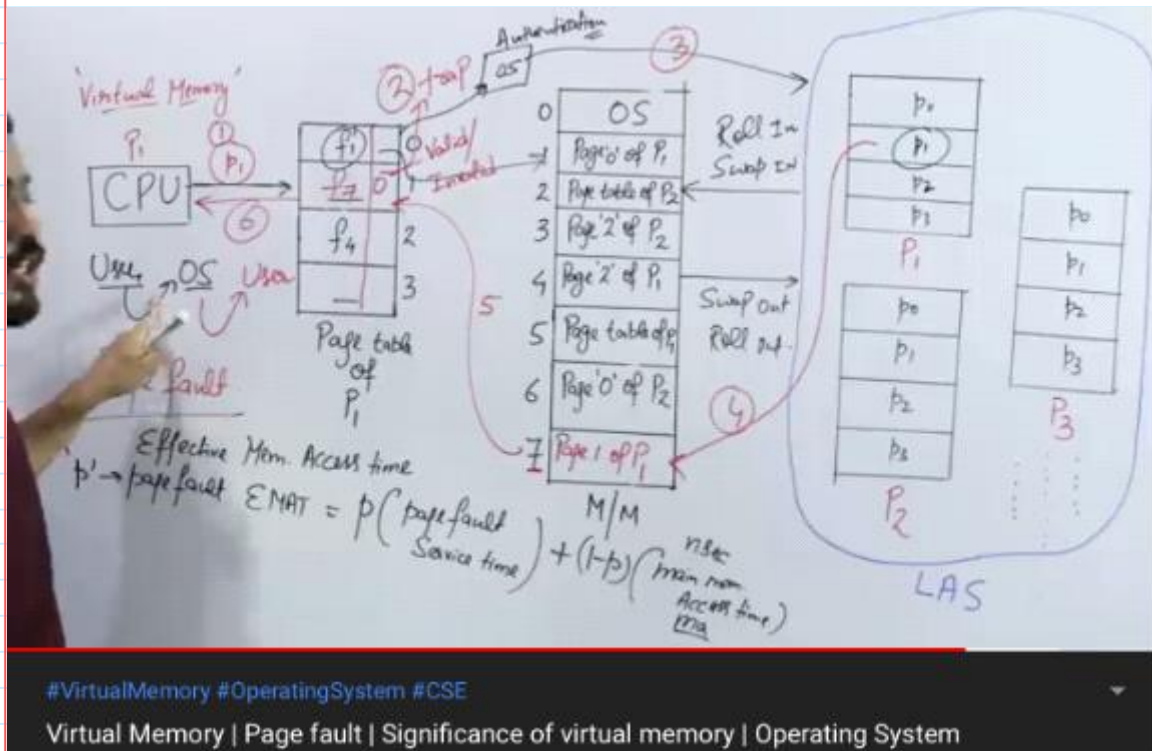 'Virtual Memory'
P1
1
p1
CPU
6
User OS User
fault
2 trap
Authentication
OS
3
Valid/
Invalid
f1 0
f7 0 1
f4 2
— 3
Page table
of
P1
5
0 OS
1 Page '0' of P1
2 Page table of P2
3 Page '2' of P2
4 Page '2' of P1
5 Page table of P1
6 Page '0' of P2
7 Page 1 of P1
M/M
Roll In
Swap IN
Swap out
Roll out
4
p1
p2
p3
P1
p0
p1
p2
p3
P2
p0
p1
p2
p3
P3
LAS
Effective Mem. Access time
'p' → page fault EMAT = p(page fault
Service time) + (1-p)(main mem
nsec
Access time)
ma
#VirtualMemory #OperatingSystem #CSE
Virtual Memory | Page fault | Significance of virtual memory | Operating System